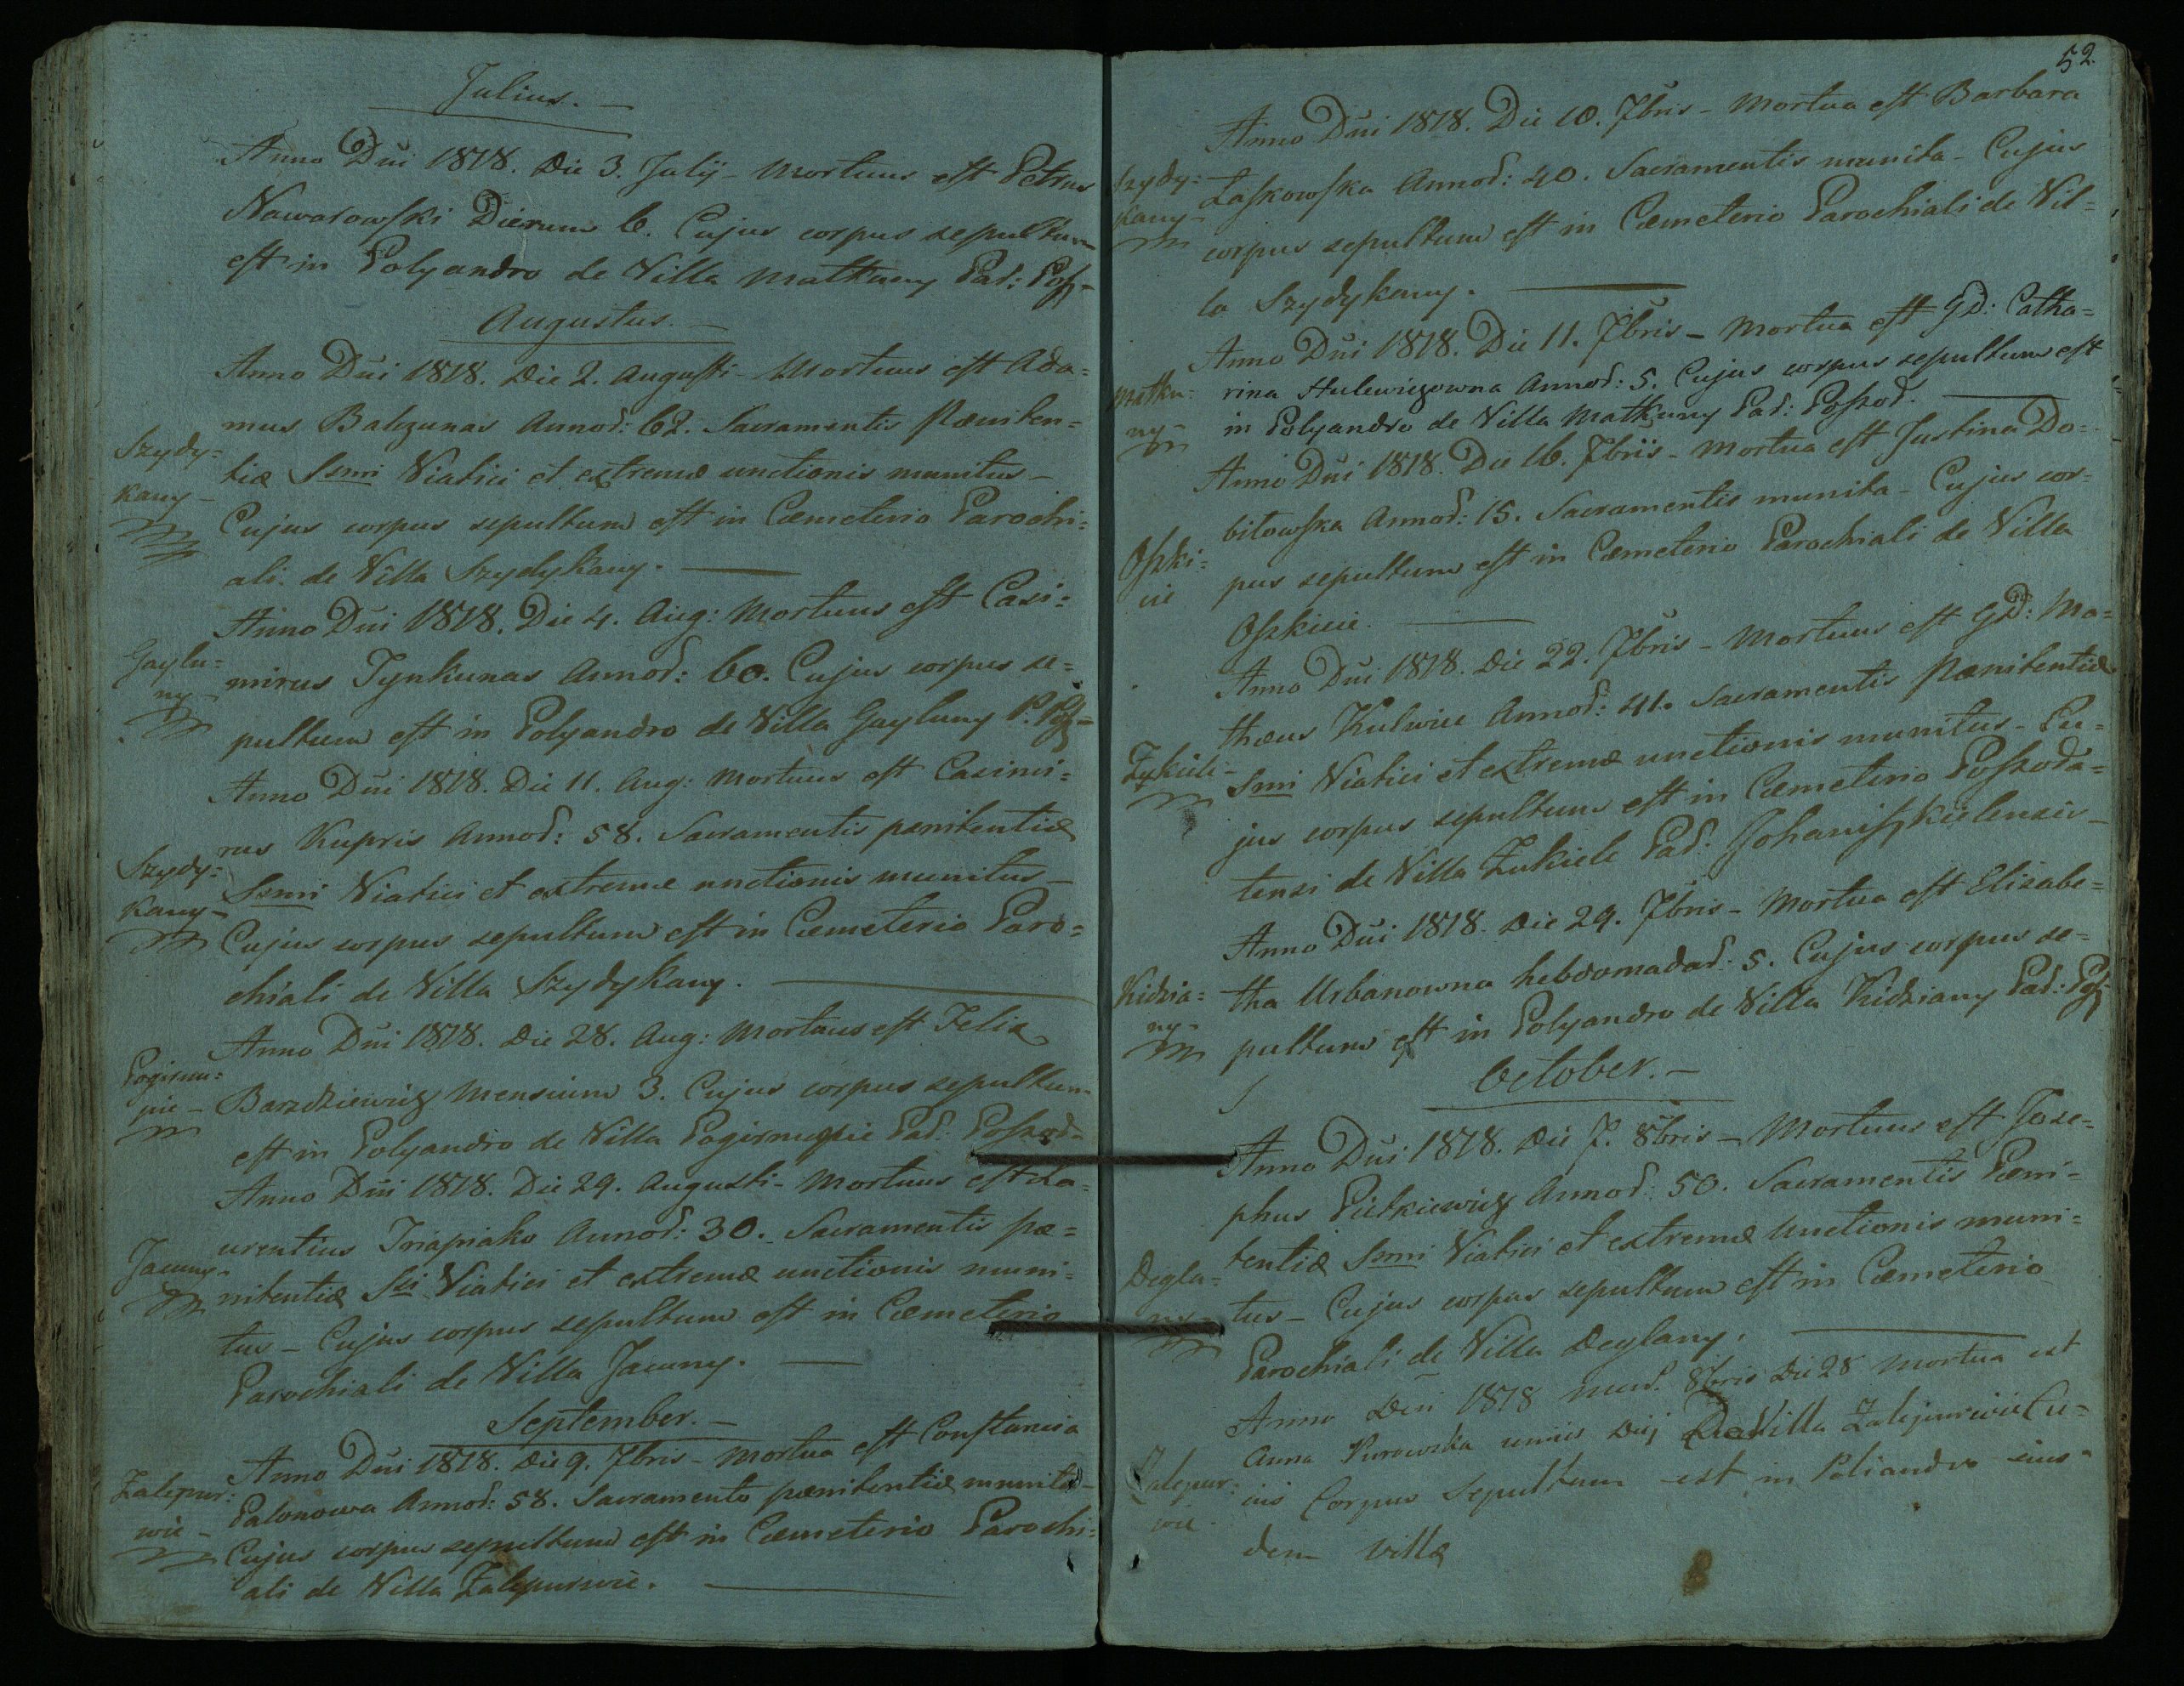 Julius.
Anno Dni 1818. Die 3. Julij - Mortuus est Petrus
Naworowski Dierum 6. Cujus corpus sepultum
est in Polyandro de Villa Matkuny Par: Posz=
Augustus.
Anno Dni 1818. Die 2. Augusti - Mortuus est Ada=
mus Balczunas Annor: 62. Sacramentis Pæniten=
Szydy=
tiæ Ssmi Viatici et extremæ unctionis munitus -
kany -
Cujus corpus sepultum est in Cæmeterio Parochi=
ali. de Villa Szydykany.
Anno Dni 1818. Die 4. Aug: Mortuus est Casi=
Gaylu=
mirus Tynkunas Annor: 60. Cujus corpus se=
ny -
pultum est in Polyandro de Villa Gayluny P. Posz=
Anno Dni 1818. Die 11. Aug: Mortuus est Casimi=
rus Kupris Annor: 58. Sacramentis pænitentiæ
Szydy=
Ssmi Viatici et extremæ unctionis munitus -
kany -
Cujus corpus sepultum est in Cæmeterio Paro=
chiali de Villa Szydykany.
Anno Dni 1818. Die 28. Aug: Mortuus est Felix
Barzdziewicz Mensium 3. Cujus corpus sepultum
est in Polyandro de Villa Par: Poszod=
Anno Dni 1818. Die 29. Augusti - Mortuus est La=
urentius Annor: 30. Sacramentis pæ=
Jacuny -
nitentiæ Sci Viatici et extremæ unctionis muni=
tus - Cujus corpus sepultum est in Cæmeterio
Parochiali de Villa Jacuny.
September.
Anno Dni 1818. Die 9. 7bris - Mortua est Constancia
Zalepur:
Palonowa Annor: 58. Sacramento pænitentiæ munita -
wie -
Cujus corpus sepultum est in Cæmeterio Parochi=
ali de Villa Zalepurwie.
52.
Anno Dni 1818. Die 10. 7bris - Mortua est Barbara
Szydy=
Laskowska Annor: 40. Sacramentis munita - Cujus
kany -
corpus sepultum est in Cæmeterio Parochiali de Vil=
la Szydykany.
Anno Dni 1818. Die 11. 7bris - Mortua est GD: Catha=
Matku=
rina Hulewiczowna Annor: 5. Cujus corpus sepultum est
ny -
in Polyandro de Villa Matkuny Par: Poszod.
Anno Dni 1818. Die 16. 7bris - Mortua est Justina Do=
bitowska Annor: 15. Sacramentis munita - Cujus cor=
pus sepultum est in Cæmeterio Parochiali de Villa
Anno Dni 1818. Die 22. 7bris - Mortuus est GD: Ma=
thæus Kulwiec Annor: 41. Sacramentis Pænitentiæ
Ssmi Viatici et extremæ unctionis munitus - Cu=
jus corpus sepultum est in Cæmeterio Poszoda=
tensi de Villa Zukiele Par. Johaniszkielensis -
Anno Dni 1818. Die 29. 7bris - Mortua est Elisabe=
Kidzia=
tha Urbanowna hebdomadar: 5. Cujus corpus se=
ny -
pultum est in Polyandro de Villa Kidziany Par: Posz
October.
Anno Dni 1818. Die 7. 8bris - Mortuus est Jose=
phus Pietkiewicz Annor: 50. Sacramentis Pæni=
tentiæ Ssmi Viatici et extremæ Unctionis muni=
Degla=
tus - Cujus corpus sepultum est in Cæmeterio
ny -
Parochiali de Villa Deglany.
Anno Dni 1818 8bris Die 28 Mortua est
Anna Purowska unius Diej De Villa Zalepurwie Cu=
Zalepur:
ius Corpus Sepultum est in Poliandro eius=
wie.
dem Villæ